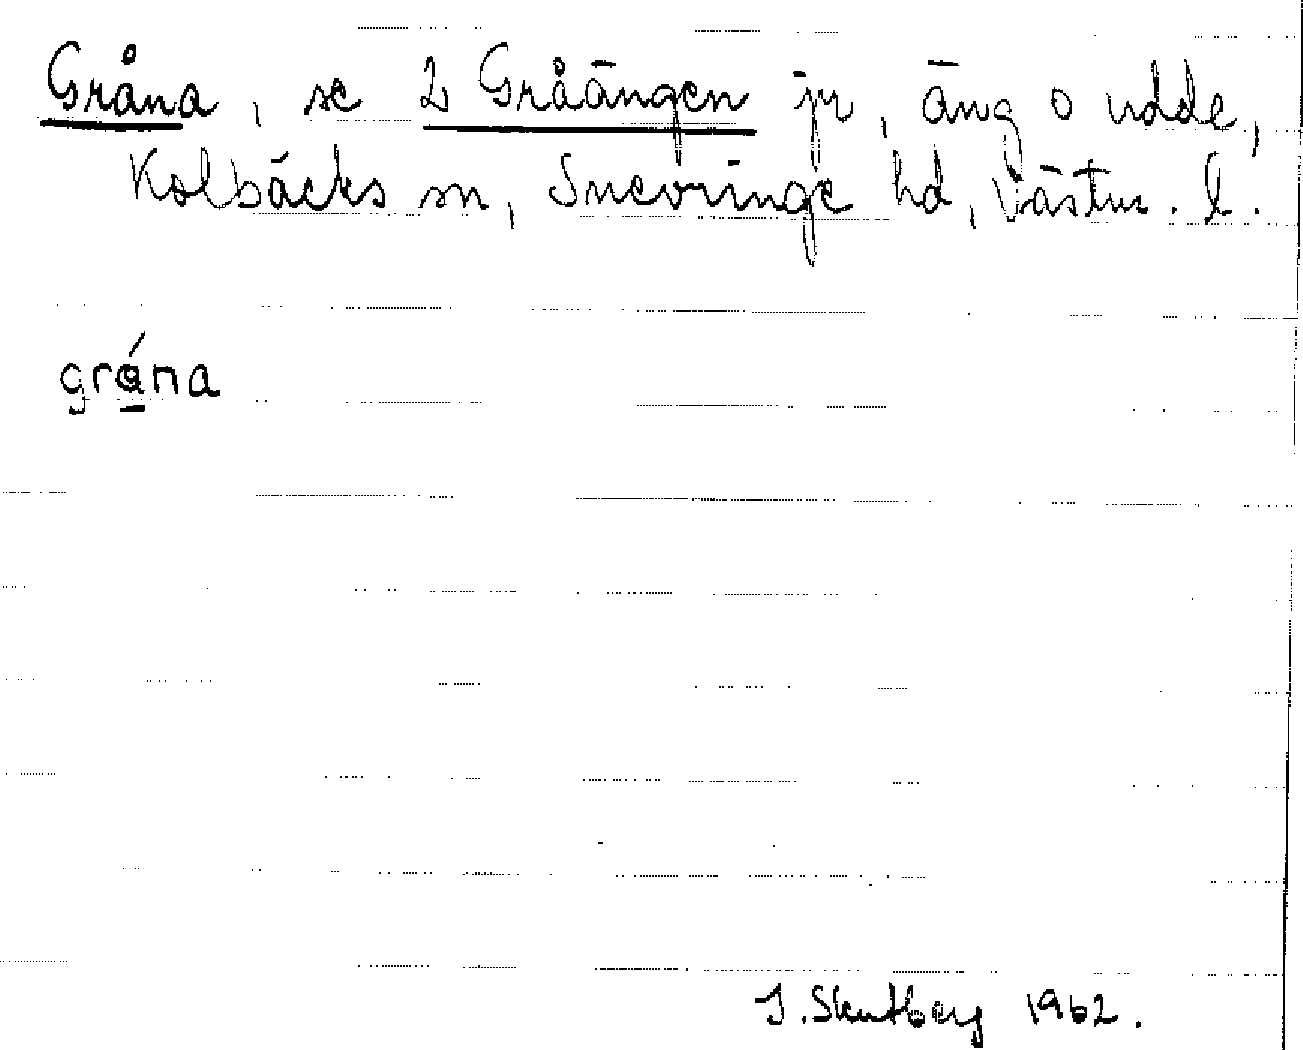 Gråna, se 2 Gråängen jr, äng o udde,
Kolbäcks sn, Snevringe hd, Västm. l.
gråna
J. Skutberg 1962.